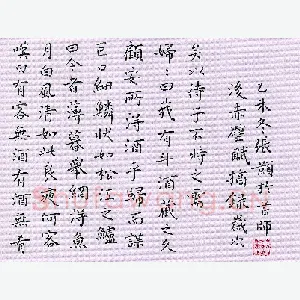 嘆曰有客無酒有酒無肴
月白風清如此良夜何客
曰今者薄暮舉網得魚
巨口細鱗狀如松江之鱸
顧安所得酒乎歸而謀
婦〻曰我有斗酒藏之久
矣以待子不時之需
後赤壁賦摘錄歲次
乙未冬張灝於古師